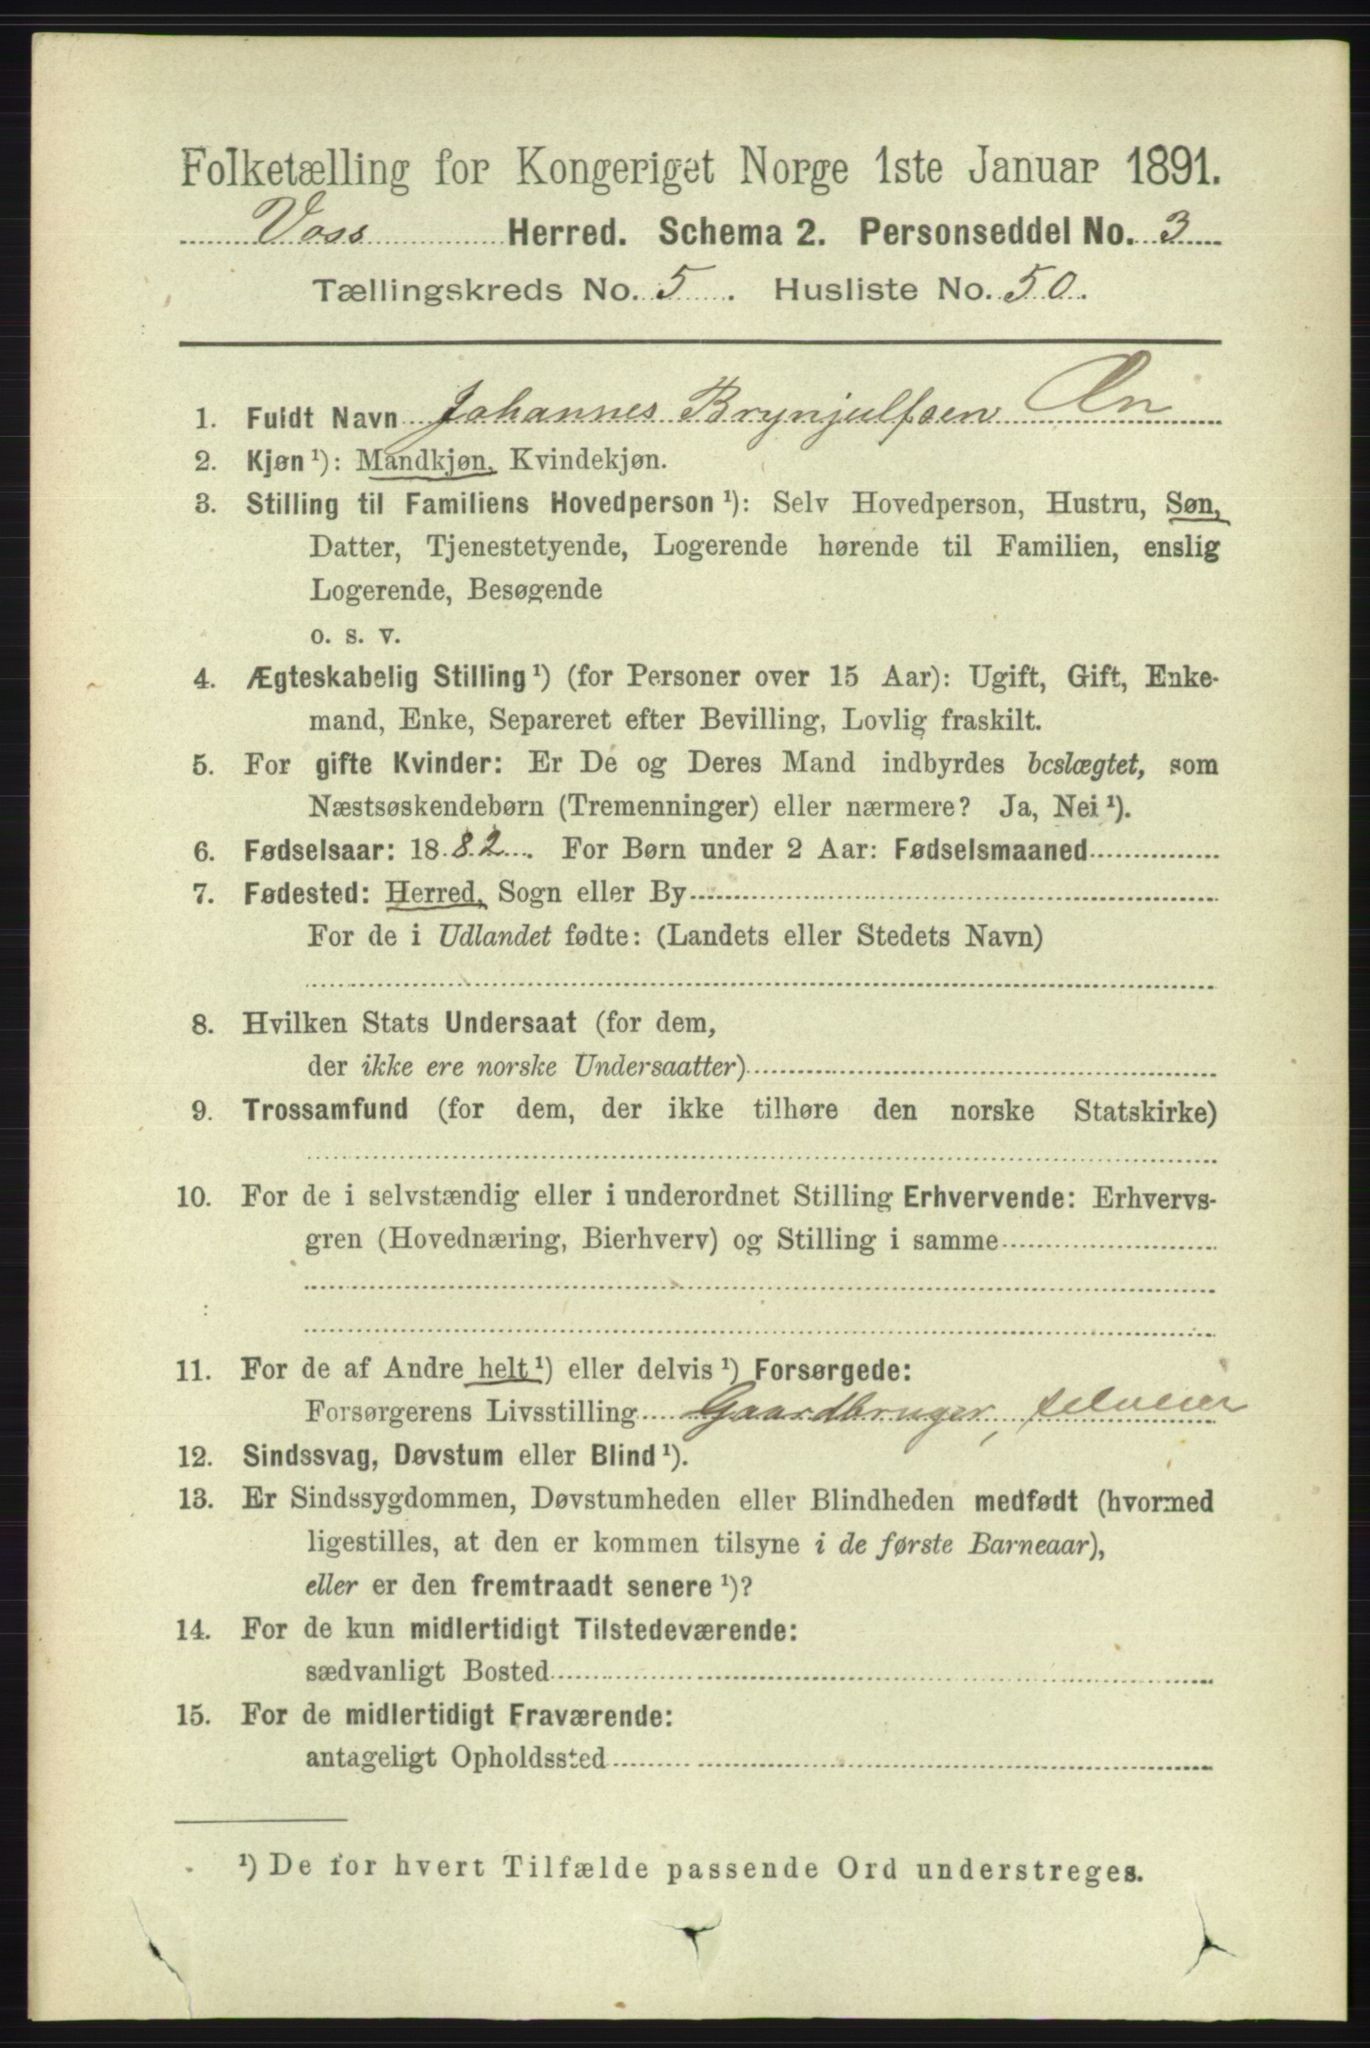 Folketælling for Kongeriget Norge 1ste Januar 1891.
Voss Herred. Schema 2. Personseddel No. 3
Tællingskreds No. 5. Husliste No. 50.
1. Fuldt Navn Johannes Brynjulfsen Øn
2. Kjøn ¹): Mandkjøn, Kvindekjøn.
3. Stilling til Familiens Hovedperson ¹): Selv Hovedperson, Hustru, Søn,
Datter, Tjenestetyende, Logerende hørende til Familien, enslig
Logerende, Besøgende
o. s. v.
4. Ægteskabelig Stilling ¹) (for Personer over 15 Aar): Ugift, Gift, Enke-
mand, Enke, Separeret efter Bevilling, Lovlig fraskilt.
5. For gifte Kvinder: Er De og Deres Mand indbyrdes beslægtet, som
Næstsøskendebørn (Tremenninger) eller nærmere? Ja, Nei ¹).
6. Fødselsaar: 1882. For Børn under 2 Aar: Fødselsmaaned
7. Fødested: Herred, Sogn eller By
For de i Udlandet fødte: (Landets eller Stedets Navn)
8. Hvilken Stats Undersaat (for dem,
der ikke ere norske Undersaatter)
9. Trossamfund (for dem, der ikke tilhøre den norske Statskirke)
10. For de i selvstændig eller i underordnet Stilling Erhvervende: Erhvervs-
gren (Hovednæring, Bierhverv) og Stilling i samme
11. For de af Andre helt ¹) eller delvis ¹) Forsørgede:
Forsørgerens Livsstilling Gaardbruger, selveier
12. Sindssvag, Døvstum eller Blind ¹).
13. Er Sindssygdommen, Døvstumheden eller Blindheden medfødt (hvormed
ligestilles, at den er kommen tilsyne i de første Barneaar),
eller er den fremtraadt senere ¹)?
14. For de kun midlertidigt Tilstedeværende:
sædvanligt Bosted
15. For de midlertidigt Fraværende:
antageligt Opholdssted
¹) De for hvert Tilfælde passende Ord understreges.